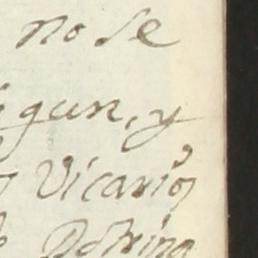 no se
gun, y
Vicarios
Dotrina